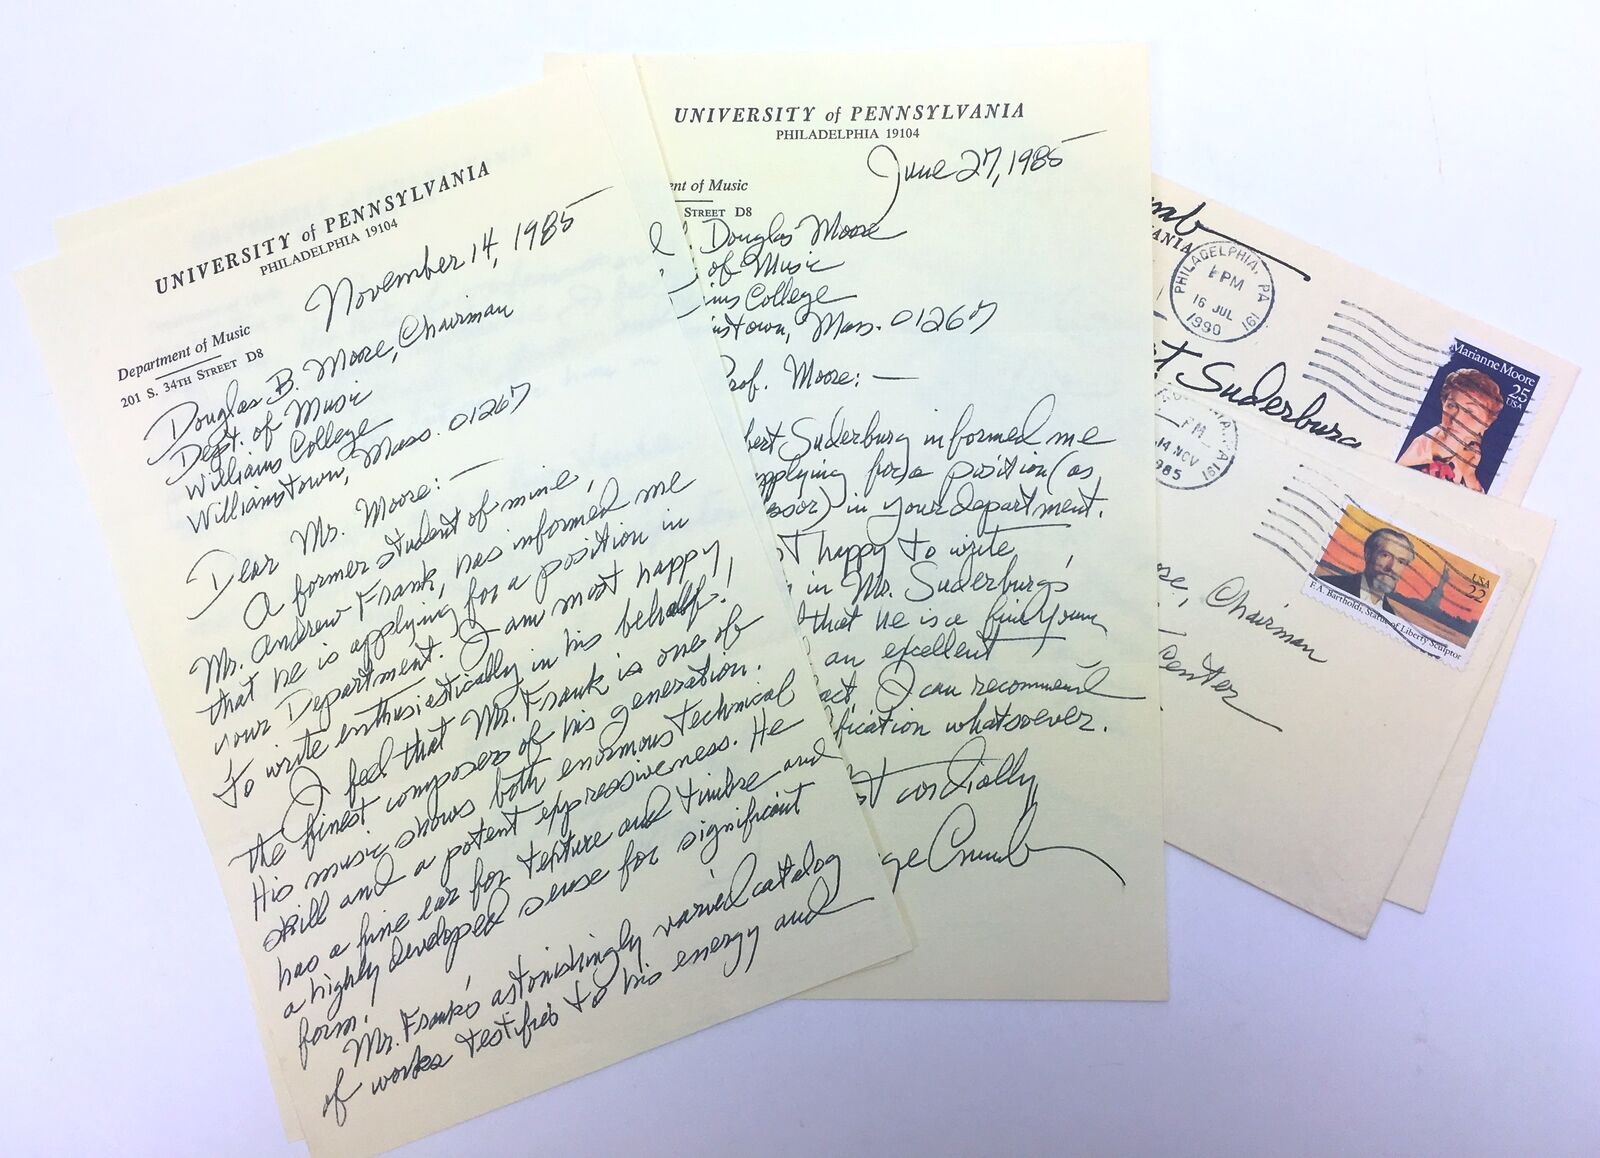 UNIVERSITY of PENNSYLVANIA
PHILADELPHIA 19104
November 14, 1985
Department of Music
201 S. 34TH STREET D8
Douglas B. Moore, Chairman
Dept. of Music
Williams College
Williamstown, Mass. 01267
Dear Mr. Moore: —
A former student of mine,
Mr. Andrew Frank, has informed me
that he is applying for a position in
your Department. I am most happy
to write enthusiastically in his behalf.
I feel that Mr. Frank is one of
the finest composers of his generation.
His music shows both enormous technical
skill and a potent expressiveness. He
has a fine ear for texture and timbre and
a highly developed sense for significant
form.
Mr. Frank's astonishingly varied catalog
of works testifies to his energy and
UNIVERSITY of PENNSYLVANIA
PHILADELPHIA 19104
June 27, 1985
ent of Music
STREET D8
Douglas Moore
of Music
ams College
nstown, Mass. 01267
Prof. Moore: —
bert Suderburg informed me
applying for a position (as
ssor) in your department.
t happy to write
in Mr. Suderburg's
that he is a fine
an excellent
act, I can recommend
fication whatsoever.
t cordially,
ge Crumb
mb
ANIA
PHILADELPHIA, PA 191
PM
16 JUL
1990
Marianne Moore
25
USA
t Suderburg
PM
14 NOV
1985
USA
22
F.A. Bartholdi, Statue of Liberty Sculptor
re, Chairman
Center